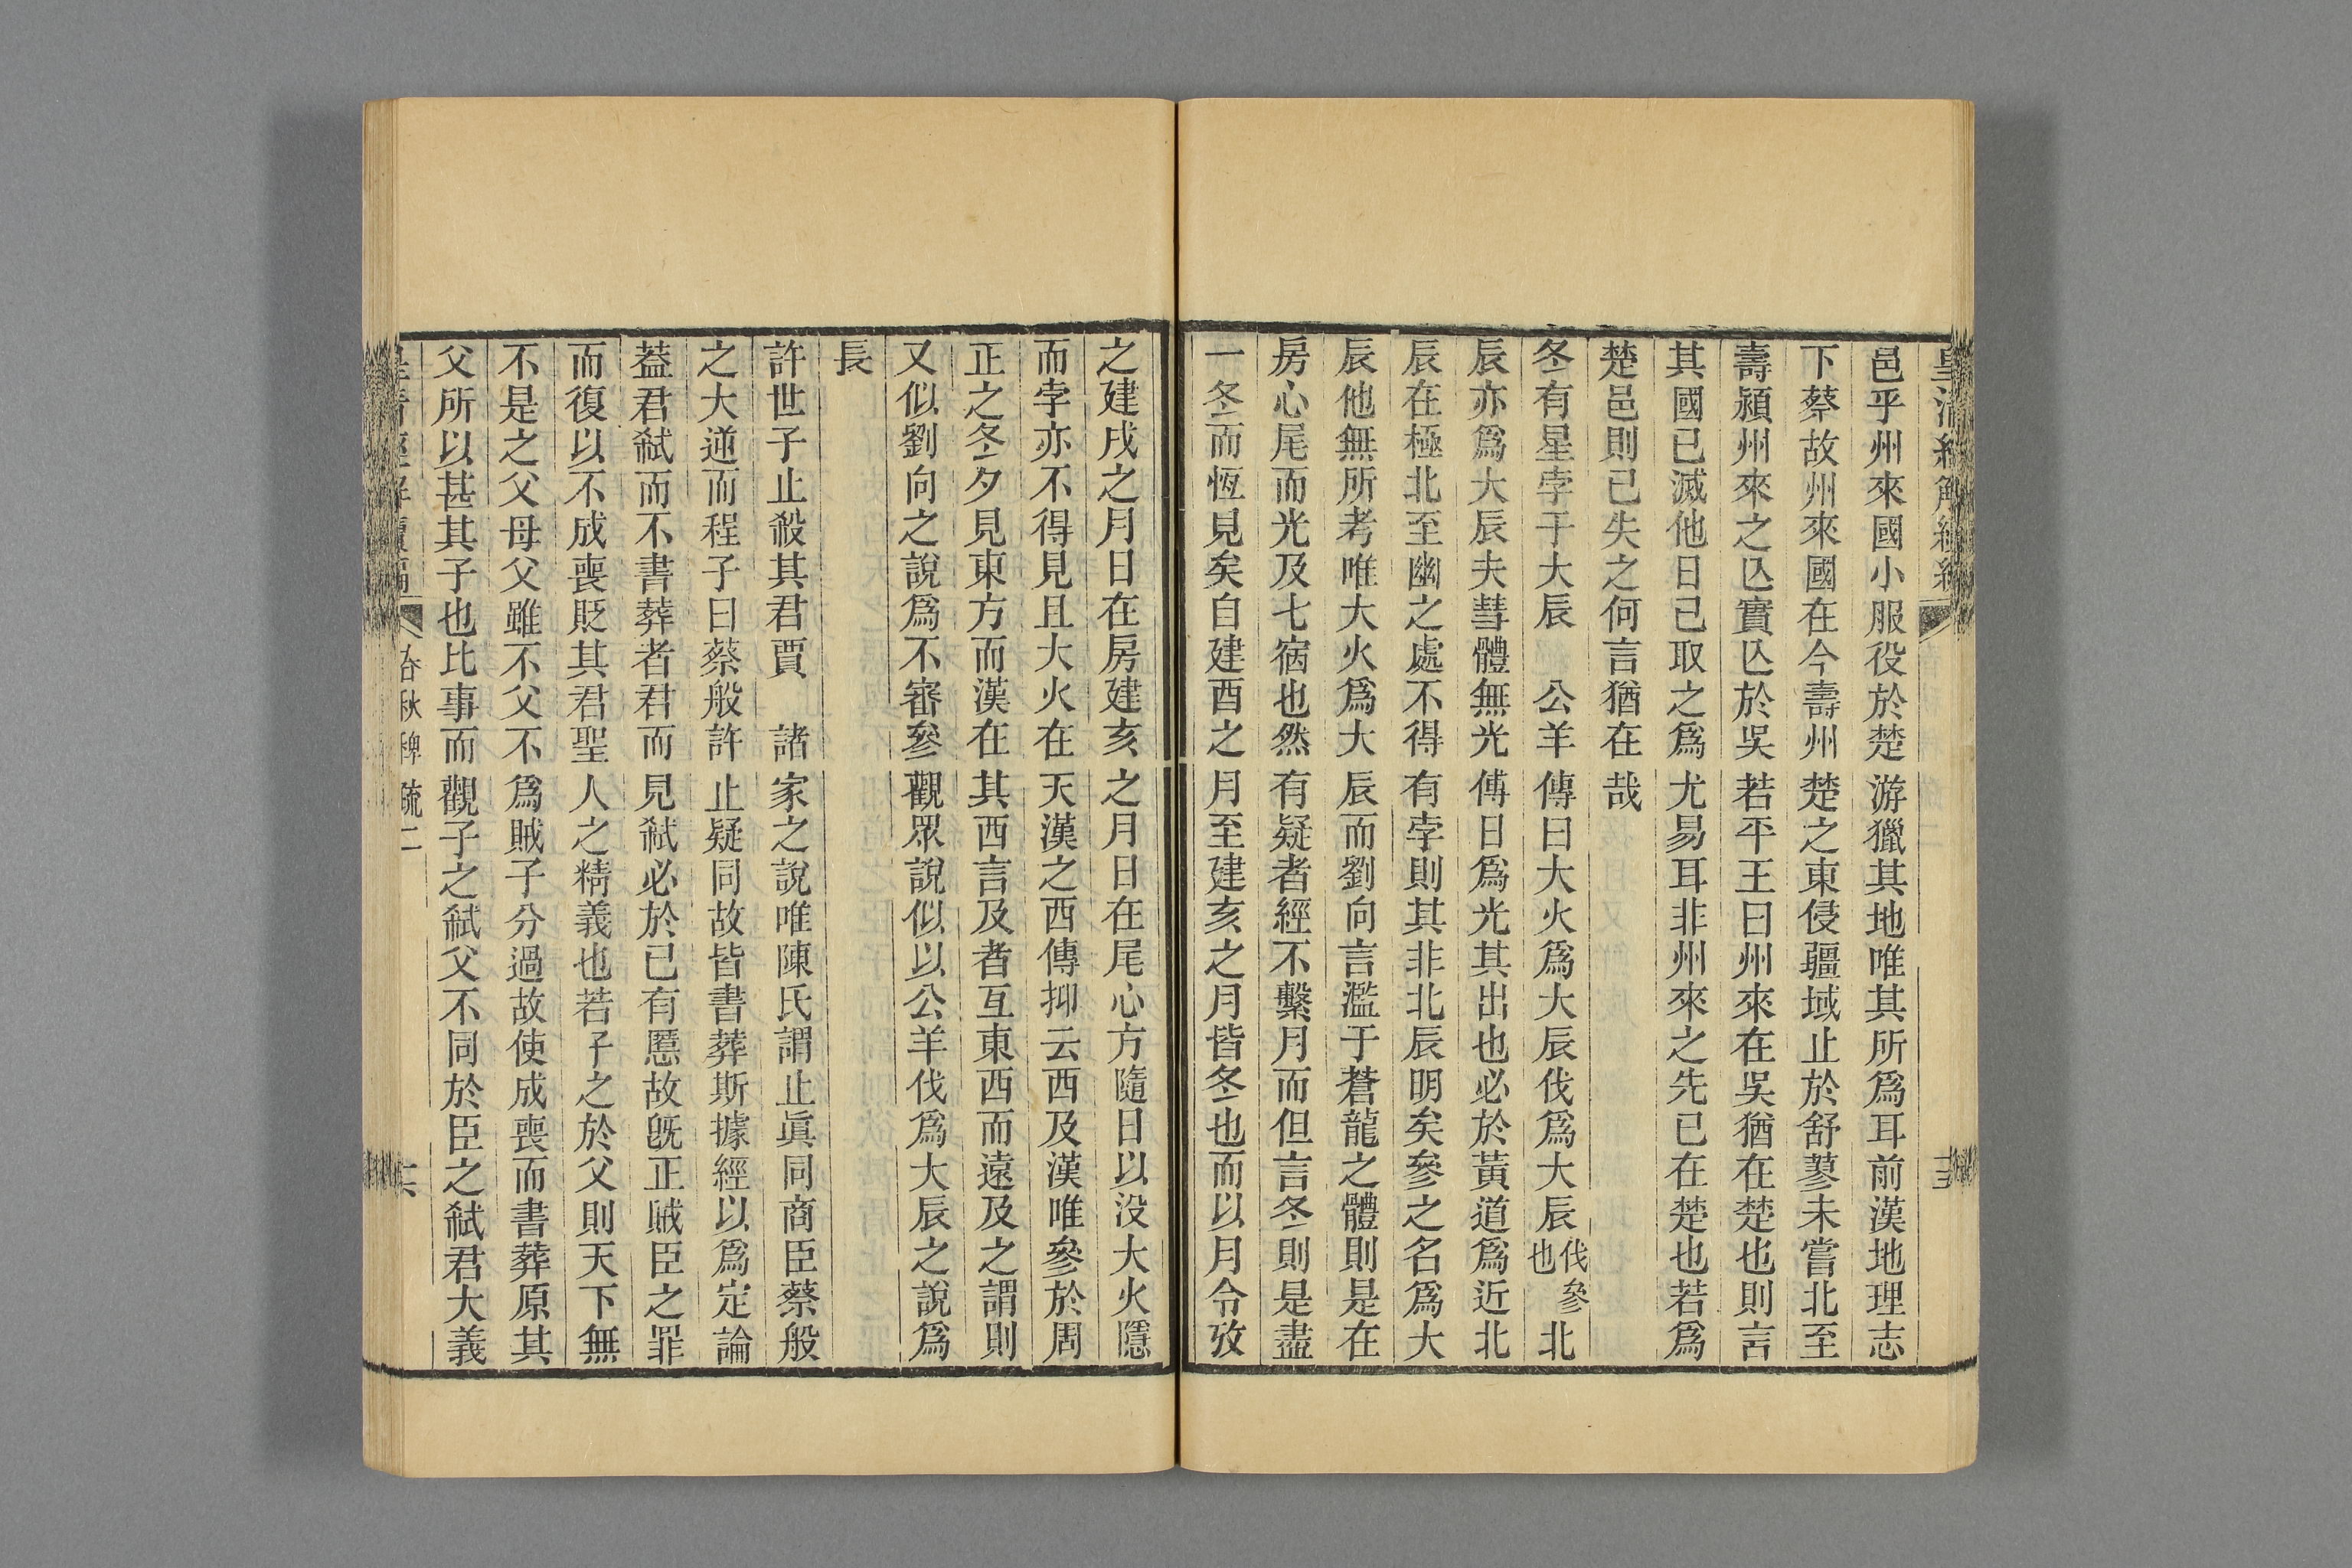 皇清經解續編
十五
邑乎州來國小服役於楚游獵其地唯其所爲耳前漢地理志
下蔡故州來國在今壽州楚之東侵疆域止於舒蓼未嘗北至
壽潁州來之亾實亾於吳若平王曰州來在吳猶在楚也則言
其國已滅他日己取之爲尤易耳非州來之先已在楚也若爲
楚邑則已失之何言猶在哉
冬有星孛于大辰　公羊傳曰大火爲大辰伐爲大辰伐參也北
辰亦爲大辰夫彗體無光傅日爲光其出也必於黃道爲近北
辰在極北至幽之處不得有孛則其非北辰明矣參之名爲大
辰他無所考唯大火爲大辰而劉向言濫于蒼龍之體則是在
房心尾而光及七宿也然有疑者經不繫月而但言冬則是盡
一冬而恆見矣自建酉之月至建亥之月皆冬也而以月令攷
之建戌之月日在房建亥之月日在尾心方隨日以没大火隱
而孛亦不得見且大火在天漢之西傳抑云西及漢唯參於周
正之冬夕見東方而漢在其西言及者互東西而遠及之謂則
又似劉向之說爲不審參觀眾說似以公羊伐爲大辰之說爲
長
許世子止殺其君買　諸家之說唯陳氏謂止眞同商臣蔡般
之大逆而程子曰蔡般許止疑同故皆書葬斯據經以爲定論
葢君弑而不書葬者君而見弑必於已有慝故旣正賊臣之罪
而復以不成喪貶其君聖人之精義也若子之於父則天下無
不是之父母父雖不父不爲賊子分過故使成喪而書葬原其
父所以甚其子也比事而觀子之弑父不同於臣之弑君大義
皇清經解續編
春秋稗疏二
十六